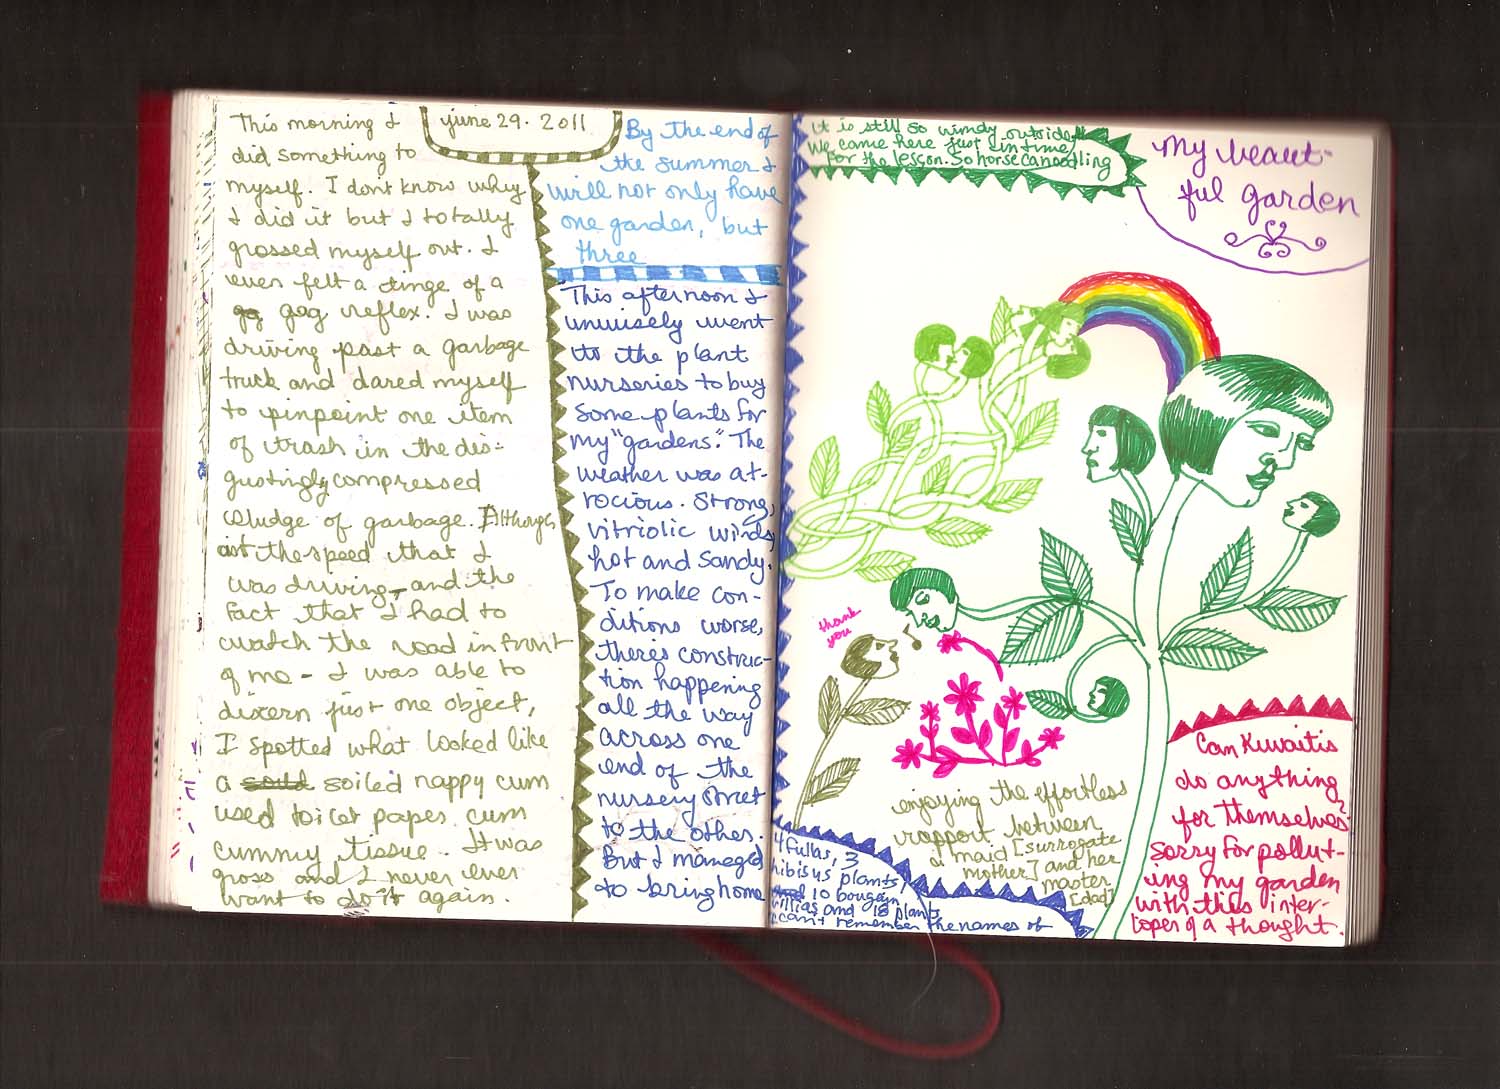 This morning I
did something to
myself. I dont know why
I did it but I totally
grossed myself out. I
even felt a tinge of a
gag gag reflex. I was
driving past a garbage
truck and dared myself
to pinpoint one item
of trash in the dis-
gustingly compressed
sludge of garbage. Although
at the speed that I
was driving, and the
fact that I had to
watch the road in front
of me - I was able to
discern just one object,
I spotted what looked like
a soiled nappy cum
used toilet paper cum
cummy tissue. It was
gross and I never ever
want to do it again.
june 29. 2011
By the end of
the summer I
will not only have
one garden, but
three
This afternoon I
unwisely went
to the plant
nurseries to buy
some plants for
my "gardens." The
weather was at-
rocious. Strong,
vitriolic winds,
hot and sandy.
To make con-
ditions worse,
theres construc-
tion happening
all the way
across one
end of the
nursery street
to the other.
But I managed
to bring home
4 fullas, 3
hibisus plants,
10 bougain
villias and 18 plants
I can't remember the names of
it is still so windy outside
We came here just in time
for the lesson. So horse canoodling
My beaut-
ful garden
thank
you
enjoying the effortless
rapport between
a maid [surrogate
mother] and her
master
[dad]
Can Kuwaitis
do anything
for themselves?
Sorry for pollut-
ing my garden
with this inter-
loper of a thought.